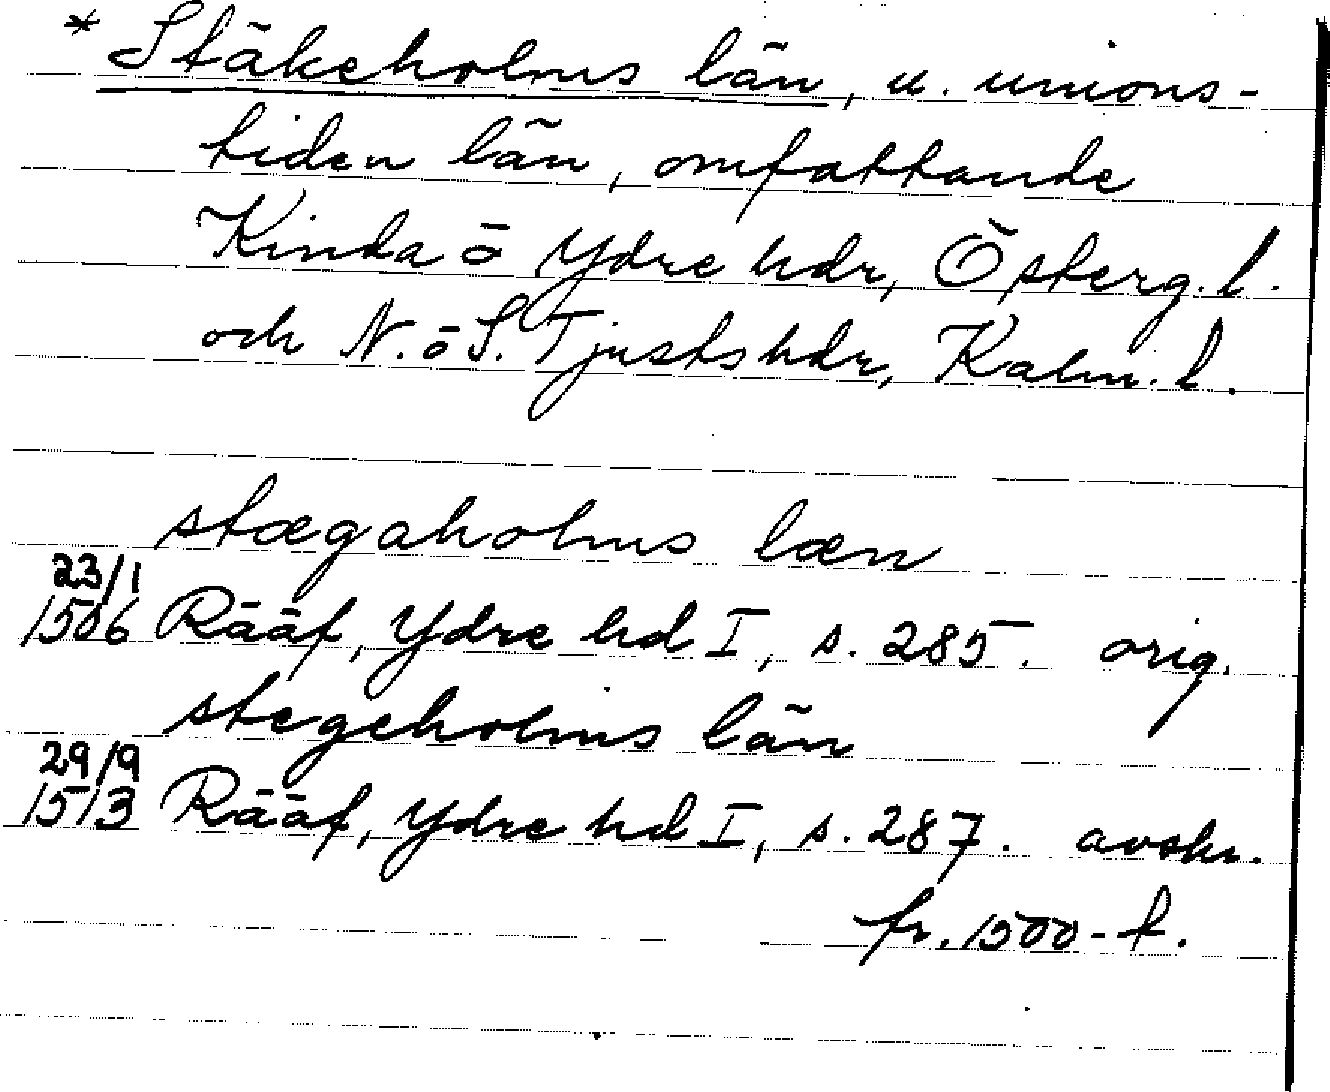 * Stäkeholms län, u. unions-
tiden län, omfattande
Kinda o Ydre hdr, Österg. l.
och N. o S. Tjusts hdr, Kalm. l.
stægaholms læn
23/1
1506 Rääf, Ydre hd I, s. 285. orig.
stegeholms län
29/9
1513 Rääf, Ydre hd I, s. 287. avskr.
fr. 1500-t.